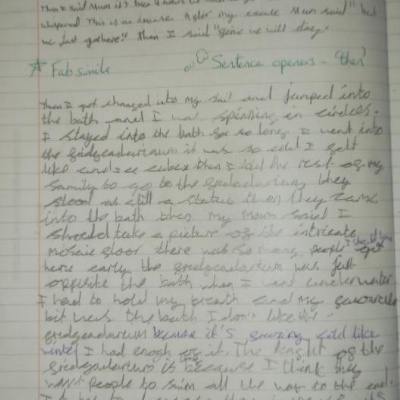 Then I said Mum it's been 4 hours
whispered This is an after my cousin Mum said "but
we just got here". Then I said "fine we will stay.
★ Fab simile Sentence openers - 'then'
Then I got changed into my suit and jumped into
the bath and I was spinning in circles.
I stayed into the bath for so long I went into
the fredgedartum it was so cold I felt
like an ice cube then I told the rest of my
family to go to the fredgedartum they
stood as still a statue then they came
into the bath then my Mum said I
should take a picture of the intricate
mosaic floor there was so many people
here early the fredgedartum was just
opposite the bath when I went underwater
I had to hold my breath and my favourite
bit was the bath I don't like the
fredgedartum because it's freezing cold like
winter I had enough of it. The length of the
fredgedartum is because I think they
want people to swim all the way to the end.